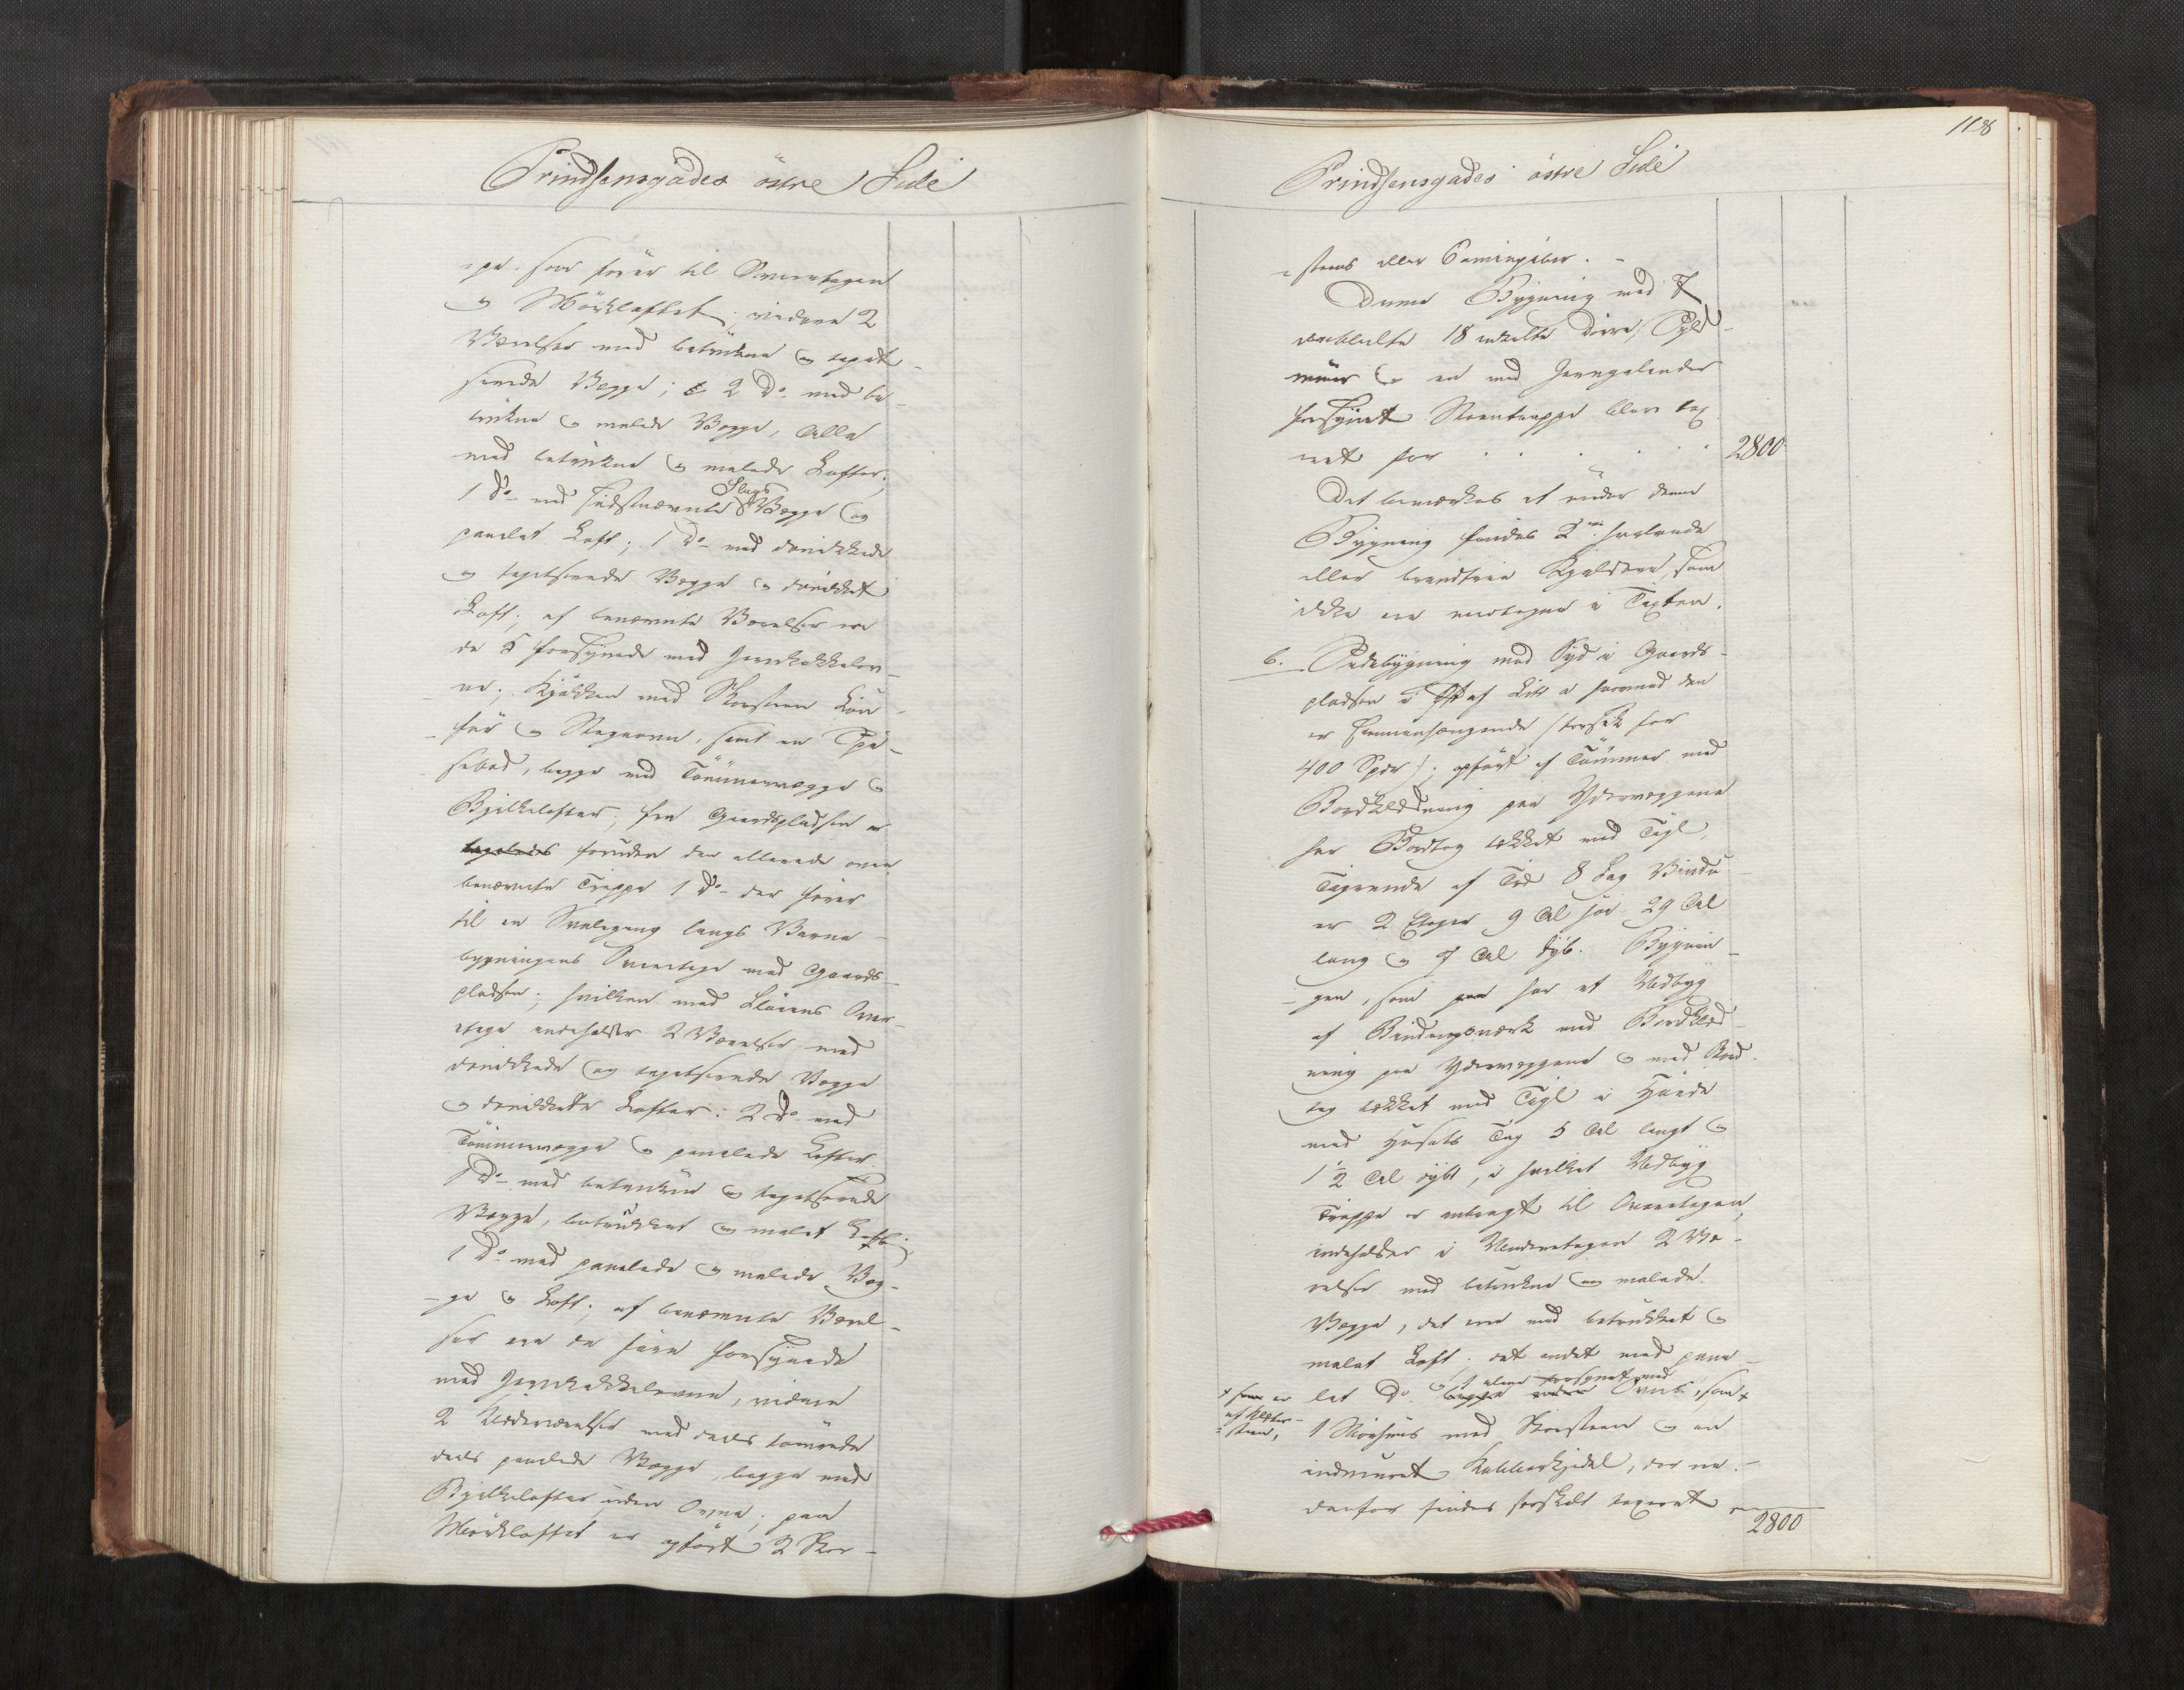 Prindsensgades östre Side
-pe, som förer til Overetagen
og Mörkloftet; videre 2
Værelser med betrukne og tapet-
serede Vægge; 2 Do med be-
trukne og malede Vægge, Alle
med betrukne og malede Lofter;
1 Do med sidstnævnte Slags Vægge og
panelet Loft; 1 Do med
og tapetserede Vægge og
Loft; af benævnte Værelser ere
de 5 forsÿnede med Jernkakkelov-
ne; Kjökken med Skorsteen
og Stegeovn, samt en Spi-
sebod, begge med Tömmervægge og
Bjelkelofter; fra Gaardspladsen er
foruden den allerede oven
benævnte Trappe 1 Do der förer
til en Svalegang langs Vaane-
bygningens Overetage mod Gaards-
pladsen; hvilken med Flöiens Over-
etage indeholder 2 Værelser med
og tapetserede Vægge
og Lofter; 2 Do med
Tömmervægge og panelede Lofter
1 Do med betrukne og tapetserede
Vægge, betrukket og malet Loft;
1 Do med panelede og malede Væg-
-ge og Loft; af benævnte Værel-
ser ere de fiire forsÿnede
med Jernkakkelovne, videre
2 Uedværelser med deels tömrede
deels panelede Vægge, begge med
Bjelkelofter uden Ovne; paa
Mörkloftet er opfört 2 Skor-
118
Prindsensgades östre Side
-steens eller Camingiber.
Denne Bygning med 7
dobbelte 18 enkelte Döre,
muur og en med Jerngelender
forsÿnet Steentrappe blev tax-
eret for 2800
Det bemærkes at under denne
Bygning findes 2de hvælvede
eller brandfrie Kjeldere, som
ikke ere medtagne i Taxten.
6. Sidebygning mod Syd i Gaards-
pladsen i Litr a hvormed den
er sammenhængende (forsik for
400 Spdr); opfört af Tömmer med
Bordklædning paa Ydervæggene
har Bordtag tækket med Tegl,
Tagrende af Træ 8 Fag Vindu-
er 2 Etager 9 Al höi 29 Al
lang og 7 Al dyb. Bygnin-
-gen, som har et Udbyg
af Bindingsværk med Bordklæd-
ning paa Ydervæggene og med Bord-
tag tækket med Tegl i Höide
med Husets Tag 5 Al langt og
1 1/2 Al dybt, i hvilket Udbyg
Trappe er anbragt til Overetagen,
indeholder i Underetagen 2 Væ-
relser med betrukne og malede
Vægge, det ene med betrukket og
malet Loft; det andet med pane-
let Do og 1 alene forsynet med Ovn, samt
× som er
af Klæber-
steen,
1 Bryghuus med Skorsteen og en
indmuret Kobberkjedel, der ne-
denfor findes særskilt taxeret
2800